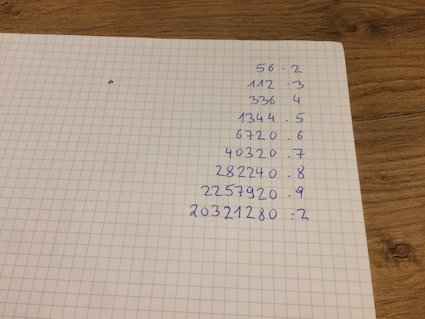 56 · 2
112 · 3
336 · 4
1344 · 5
6720 · 6
40320 · 7
282240 · 8
2257920 · 9
20321280 : 2